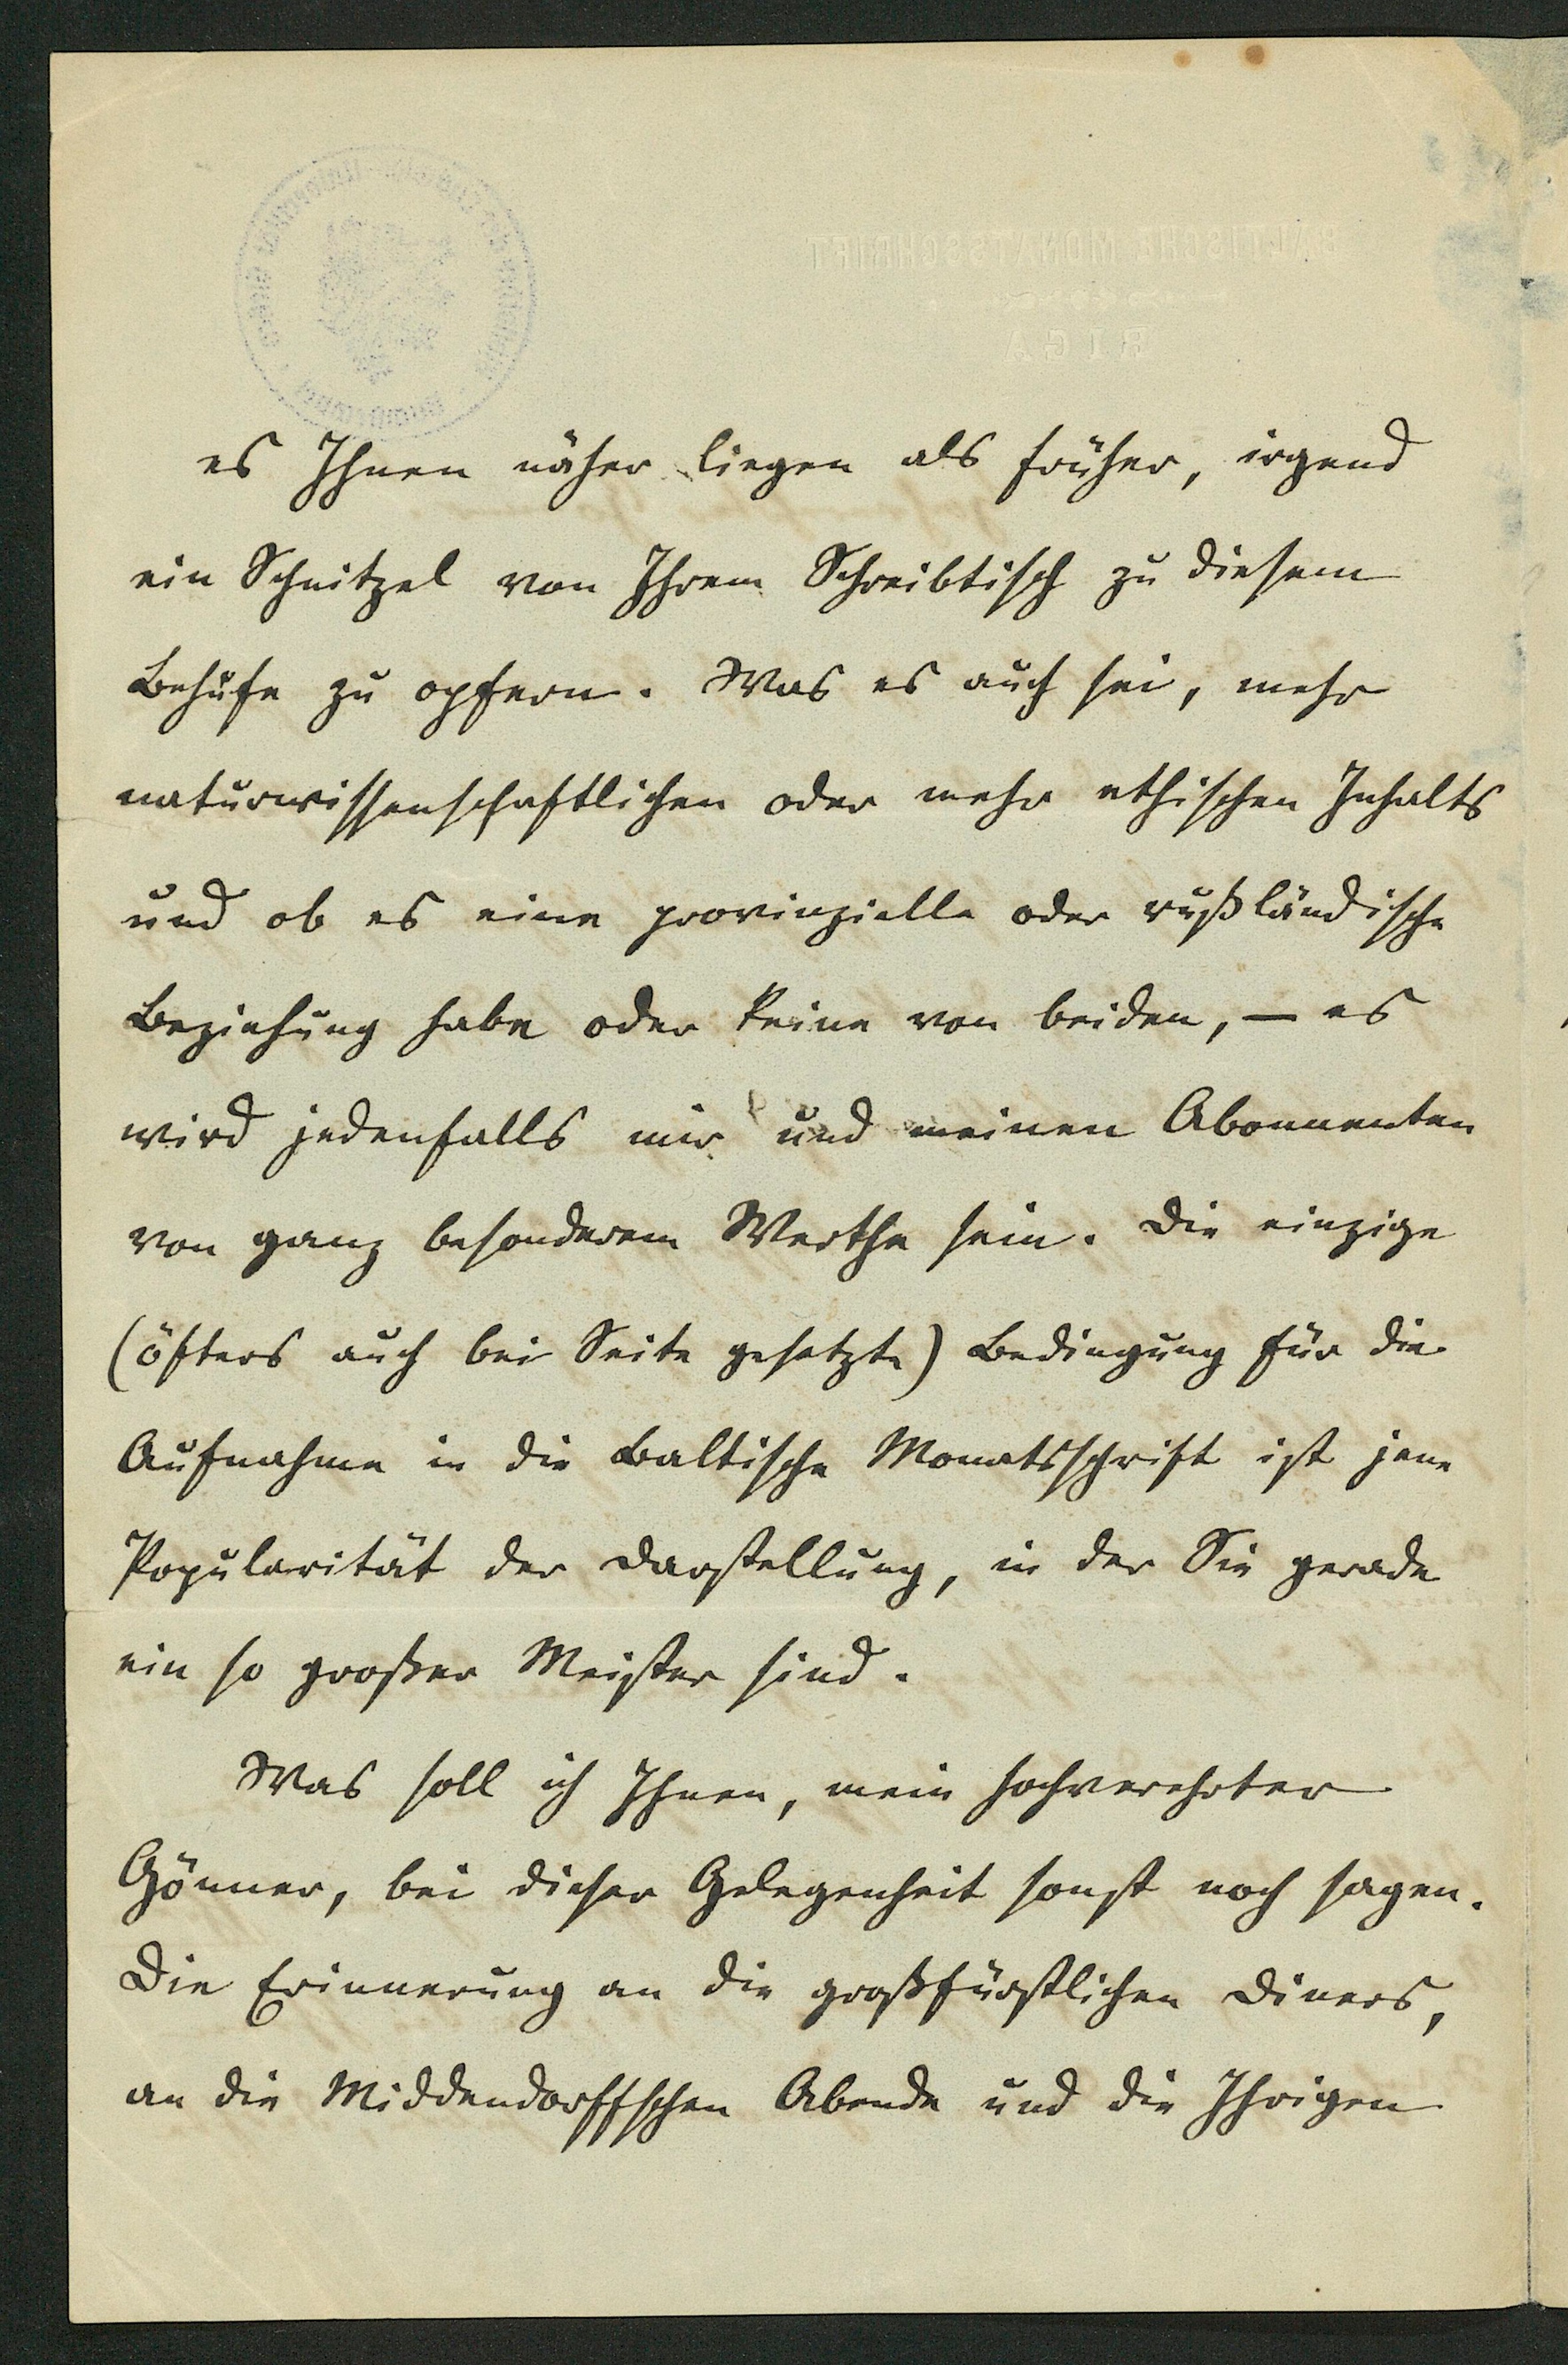 BALTISCHE MONATSSCHRIFT
RIGA
es Ihnen näher liegen als früher, irgend
ein Schnitzel von Ihrem Schreibtisch zu diesem
Behufe zu opfern. Was es auch sei, mehr
naturwissenschaftlichen oder mehr ethischen Inhalts
und ob es eine provinzielle oder rußländische
Beziehung habe oder keine von beiden, — es
wird jedenfalls mir und meinen Abonnenten
von ganz besonderem Werthe sein. Die einzige
(öfters auch bei Seite gesetzte) Bedingung für die
Aufnahme in die Baltische Monatsschrift ist jene
Popularität der Darstellung, in der Sie gerade
ein so großer Meister sind.
Was soll ich Ihnen, mein hochverehrter
Gönner, bei dieser Gelegenheit sonst noch sagen.
Die Erinnerung an die großfürstlichen Diners,
an die Middendorffschen Abende und die Ihrigen